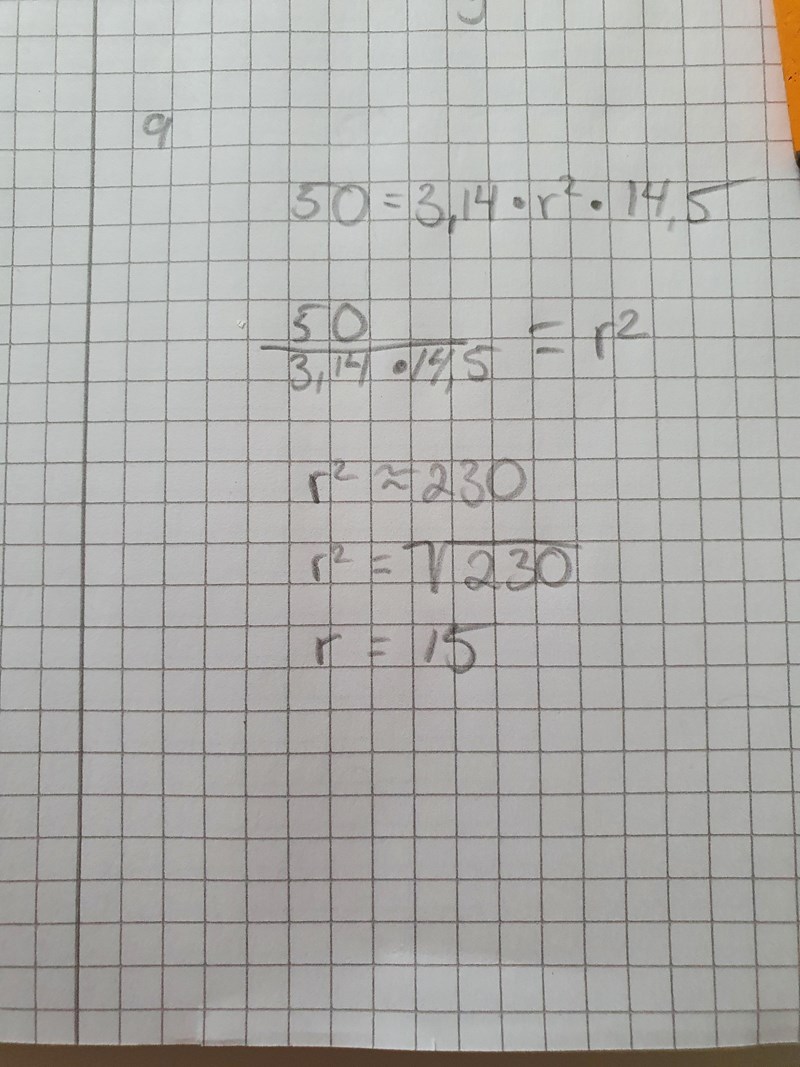 9
50 = 3,14 • r² • 14,5
50
3,14 • 14,5 = r²
r² ≈ 230
r² = √230
r = 15